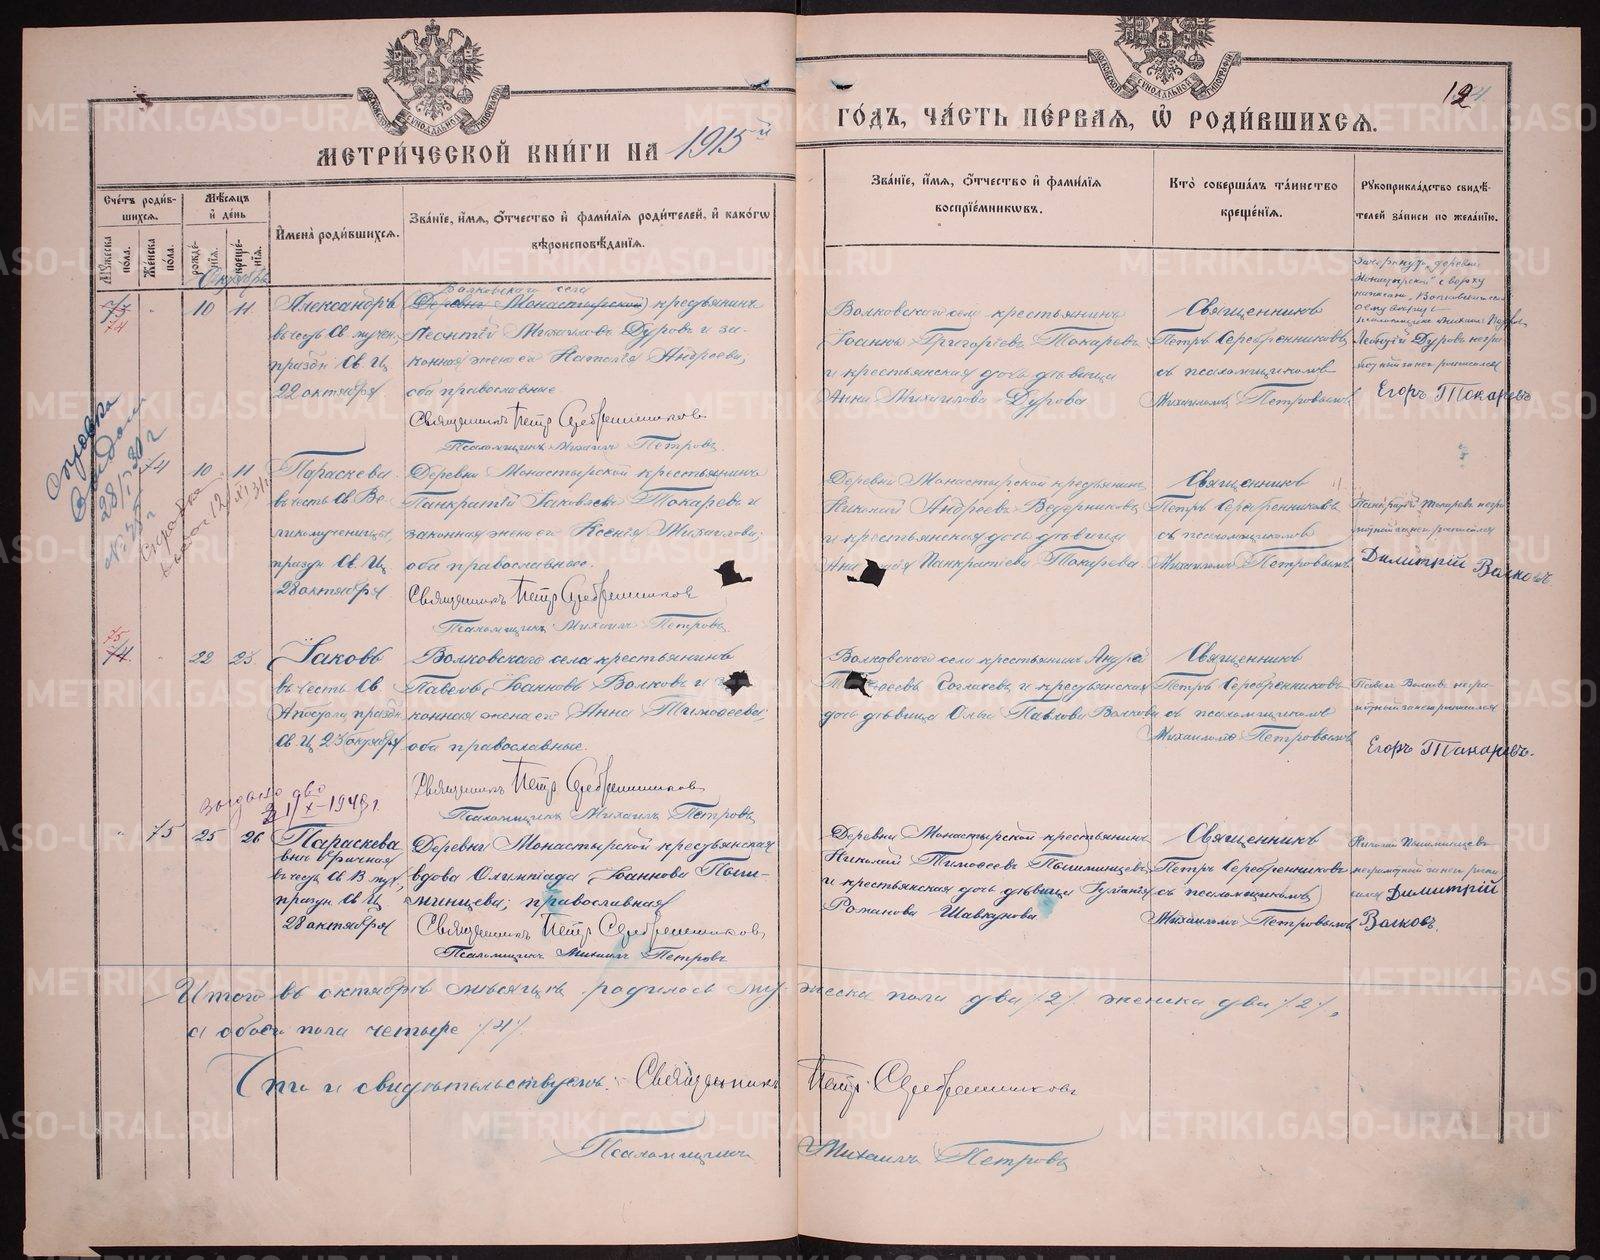 МЕТРИ́ЧЕСКОЙ КНИ́ГИ НА 1915й
ГО́ДЪ, ЧА́СТЬ ПЕ́РВАЯ, Ѽ РОДИ́ВШИХСЯ.
124
Сче́тъ роди́в-
шихся.
Му́жеска
по́ла.
Же́нска
по́ла.
Мѣ́сяцъ
и҆ де́нь
рожде́-
нія.
креще́-
нія.
Октябрь
И҆мена̀ роди́вшихся.
Зва́ніе, и҆́мя, Ѻ҆́тчество и҆ фами́лія роди́телей, и҆ како́гѡ
вѣроисповѣ́данія.
Зва́ніе, и҆́мя, Ѻ҆́тчество и҆ фами́лія
воспріе́мникѡвъ.
Кто̀ соверша́лъ та́инство
креще́нія.
Рꙋкоприкла́дство свидѣ́-
телей за́писи по жела́нію.
73
74
10 11
Александръ
въ честь Св. мучен.
праздн. Св. Ц.
22 октября
Волковскаго села
Деревни Монастырской крестьянинъ
Леонтій Михаиловъ Дуровъ и за-
конная жена его Наталія Андреева,
оба православные
Священникъ Петръ Серебренниковъ
Псаломщикъ Михаилъ Петровъ
Волковскаго села крестьянинъ
Іоаннъ Григоріевъ Токаревъ
и крестьянская дочь дѣвица
Анна Михаилова Дурова
Священникъ
Петръ Серебренниковъ
съ псаломщикомъ
Михаиломъ Петровымъ
Леонтій Дуровъ негра-
Егоръ Токаревъ
Справка
28/I 30 г
74 10 11
Параскева
въ честь Св. Ве-
ликомученицы,
праздн. Св. Ц.
28 октября
Деревни Монастырской крестьянинъ
Панкратій Іаковлевъ Токаревъ и
законная жена его Ксенія Михаилова;
оба православные.
Священникъ Петръ Серебренниковъ
Псаломщикъ Михаилъ Петровъ
Деревни Монастырской крестьянинъ
Николай Андреевъ Ведерниковъ
и крестьянская дочь дѣвица
Панкратіева Токарева
Священникъ
Петръ Серебренниковъ
съ псаломщикомъ
Михаиломъ Петровымъ
Панкратій Токаревъ негра-
Димитрій Волковъ
75
74
22 23
Іаковъ
въ честь Св.
Апостола, праздн.
Св. Ц. 23 октября
Волковскаго села крестьянинъ
Павелъ Іоанновъ Волковъ и
конная жена его Анна Тимоѳеева;
оба православные.
Священникъ Петръ Серебренниковъ
Псаломщикъ Михаилъ Петровъ
Волковскаго села крестьянинъ Андрей
и крестьянская
дочь дѣвица Ольга Павлова Волкова
Священникъ
Петръ Серебренниковъ
съ псаломщикомъ
Михаиломъ Петровымъ
Павелъ Волковъ негра-
Егоръ Токаревъ.
75 25 26
Параскева
внѣбрачная
въ честь Св. В. муч.,
праздн. Св. Ц.
28 октября
Деревни Монастырской крестьянская
вдова Олимпіада Іоаннова Пыш-
минцева; православная
Священникъ Петръ Серебренниковъ
Псаломщикъ Михаилъ Петровъ
Деревни Монастырской крестьянинъ
Николай Тимоѳеевъ Пышминцевъ
и крестьянская дочь дѣвица Іуліанія
Романова Шавкунова
Священникъ
Петръ Серебренниковъ
съ псаломщикомъ
Михаиломъ Петровымъ
Николай Пышминцевъ
Димитрій
Волковъ.
Итого въ октябрѣ мѣсяцѣ родилось мужеска пола два /2/ женска два /2/,
а обоего пола четыре /4/.
свидѣтельствуемъ: Священникъ Петръ Серебренниковъ
Псаломщикъ Михаилъ Петровъ
METRIKI.GASO-URAL.RU